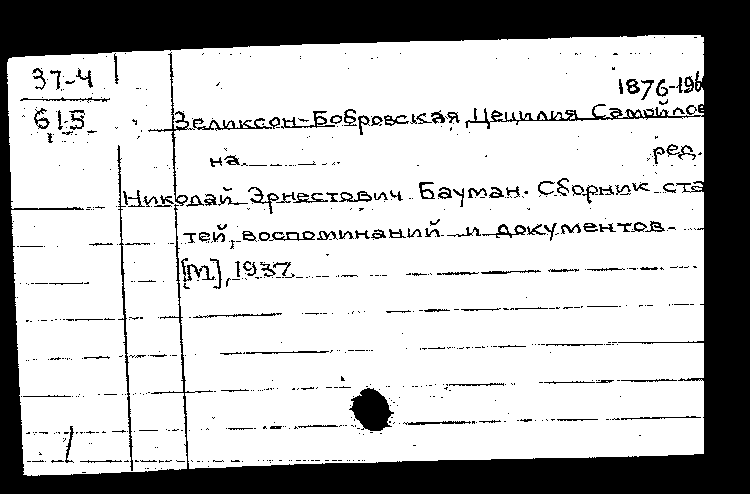 37-4
615
1876-196
Зеликсон-Бобровская, Цецилия Самойлов
на
ред.
Николай Эрнестович Бауман. Сборник ста
тей, воспоминаний и документов.
[М.], 1937.